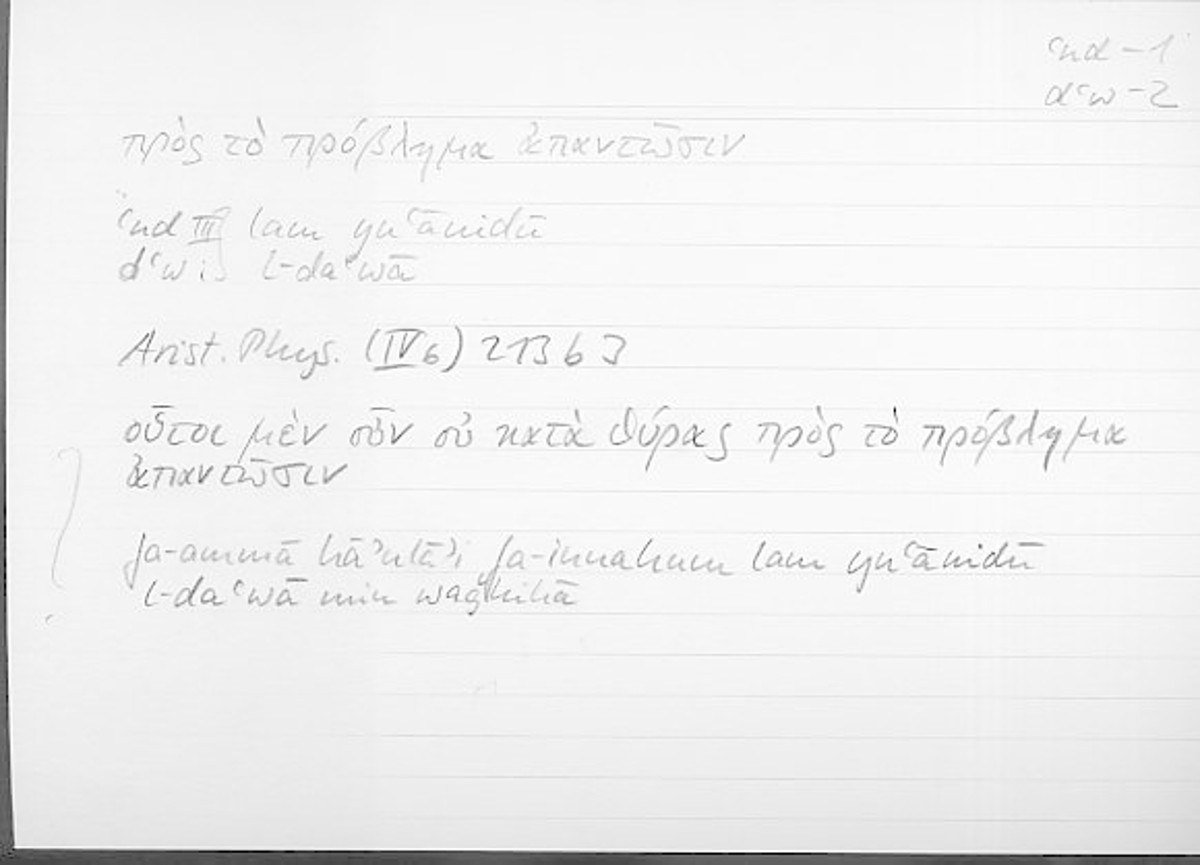 ʿnd – 1
dʿw – 2
πρὸς τὸ πρόβλημα ἀπαντῶσιν
ʿnd III lam yuʿānidū
dʿw : l-daʿwā
Arist. Phys. (IV 6) 213 b 3
οὗτοι μὲν οὖν οὐ κατὰ θύρας πρὸς τὸ πρόβλημα
ἀπαντῶσιν
fa-ammā hāʾulāʾi fa-innahum lam yuʿānidū
l-daʿwā min waǧhihā